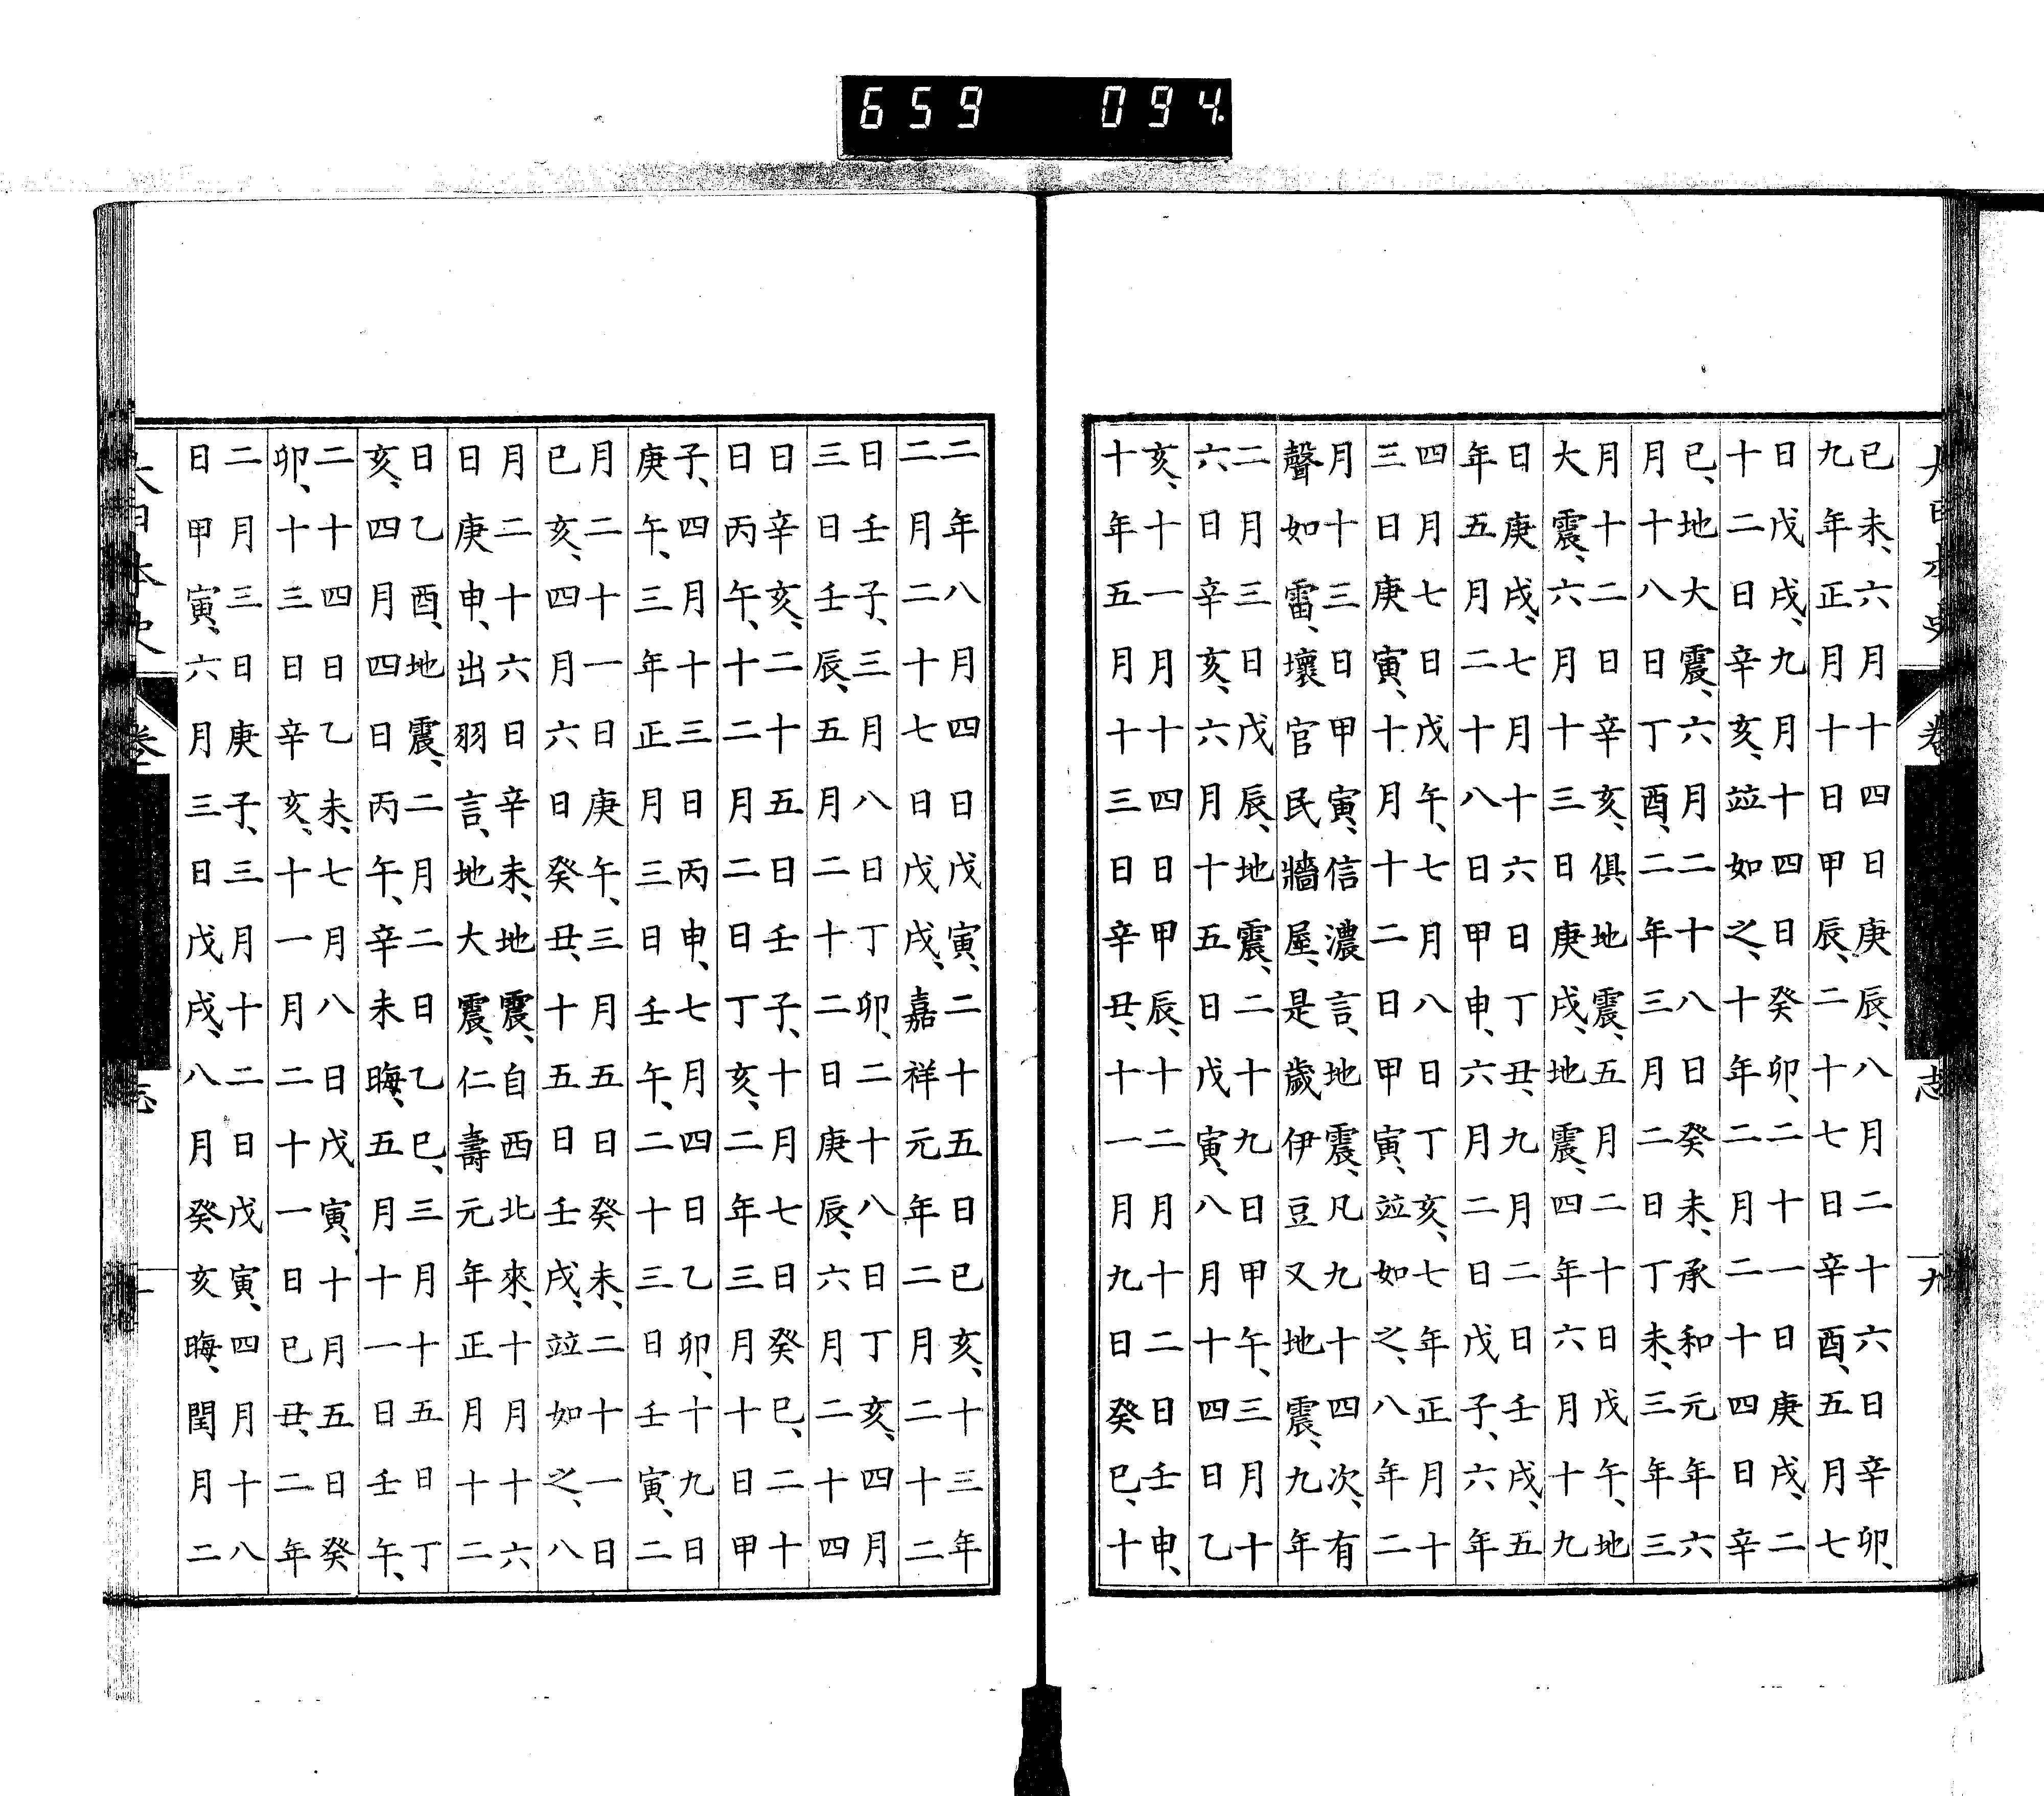 659 094
大日本史 卷 志 十九
已未、六月十四日庚辰、八月二十六日辛卯、
九年正月十日甲辰、二十七日辛酉、五月七
日戊戌、九月十四日癸卯、二十一日庚戌、二
十二日辛亥、竝如之、十年二月二十四日辛
已、地大震、六月二十八日癸未、承和元年六
月十八日丁酉、二年三月二日丁未、三年三
月十二日辛亥、俱地震、五月二十日戊午、地
大震、六月十三日庚戌、地震、四年六月十九
日庚戌、七月十六日丁丑、九月二日壬戌、五
年五月二十八日甲申、六月二日戊子、六年
四月七日戊午、七月八日丁亥、七年正月十
三日庚寅、十月十二日甲寅、竝如之、八年二
月十三日甲寅、信濃言、地震、凡九十四次、有
聲如雷、壞官民牆屋、是歲伊豆又地震、九年
二月三日戊辰、地震、二十九日甲午、三月十
六日辛亥、六月十五日戊寅、八月十四日乙
亥、十一月十四日甲辰、十二月十二日壬申、
十年五月十三日辛丑、十一月九日癸巳、十
二年八月四日戊寅、二十五日已亥、十三年
二月二十七日戊戌、嘉祥元年二月二十二
日壬子、三月八日丁卯、二十八日丁亥、四月
三日壬辰、五月二十二日庚辰、六月二十四
日辛亥、二十五日壬子、十月七日癸巳、二十
日丙午、十二月二日丁亥、二年三月十日甲
子、四月十三日丙申、七月四日乙卯、十九日
庚午、三年正月三日壬午、二十三日壬寅、二
月二十一日庚午、三月五日癸未、二十一日
已亥、四月六日癸丑、十五日壬戌、竝如之、八
月二十六日辛未、地震、自西北來、十月十六
日庚申、出羽言、地大震、仁壽元年正月十二
日乙酉、地震、二月二日乙巳、三月十五日丁
亥、四月四日丙午、辛未晦、五月十一日壬午、
二十四日乙未、七月八日戊寅、十月五日癸
卯、十三日辛亥、十一月二十一日巳丑、二年
二月三日庚子、三月十二日戊寅、四月十八
日甲寅、六月三日戊戌、八月癸亥晦、閏月二
大日本史 卷 志